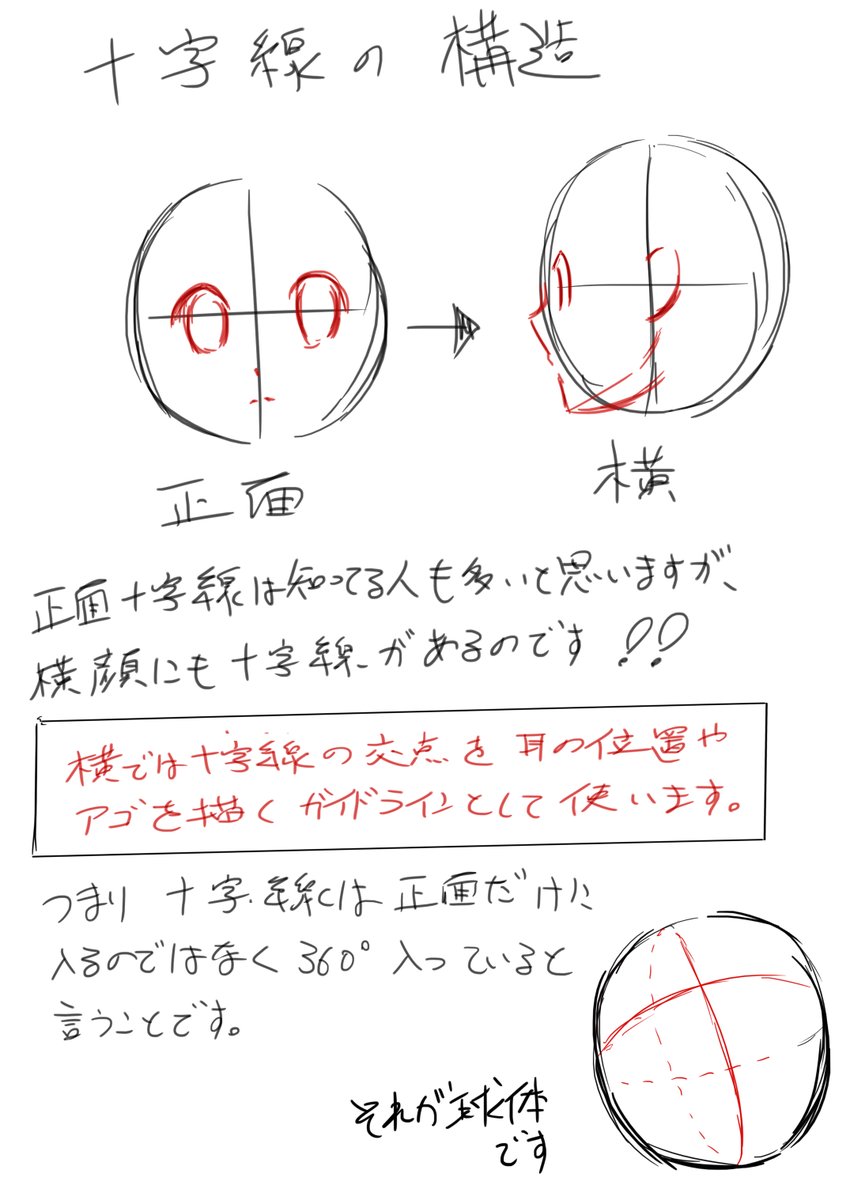 十字線の構造
正面
横
正面十字線は知ってる人も多いと思いますが、
横顔にも十字線があるのです!!
横では十字線の交点を耳の位置や
アゴを描くガイドラインとして使います。
つまり十字線は正面だけに
入るのではなく360°入っていると
言うことです。
それが球体
です